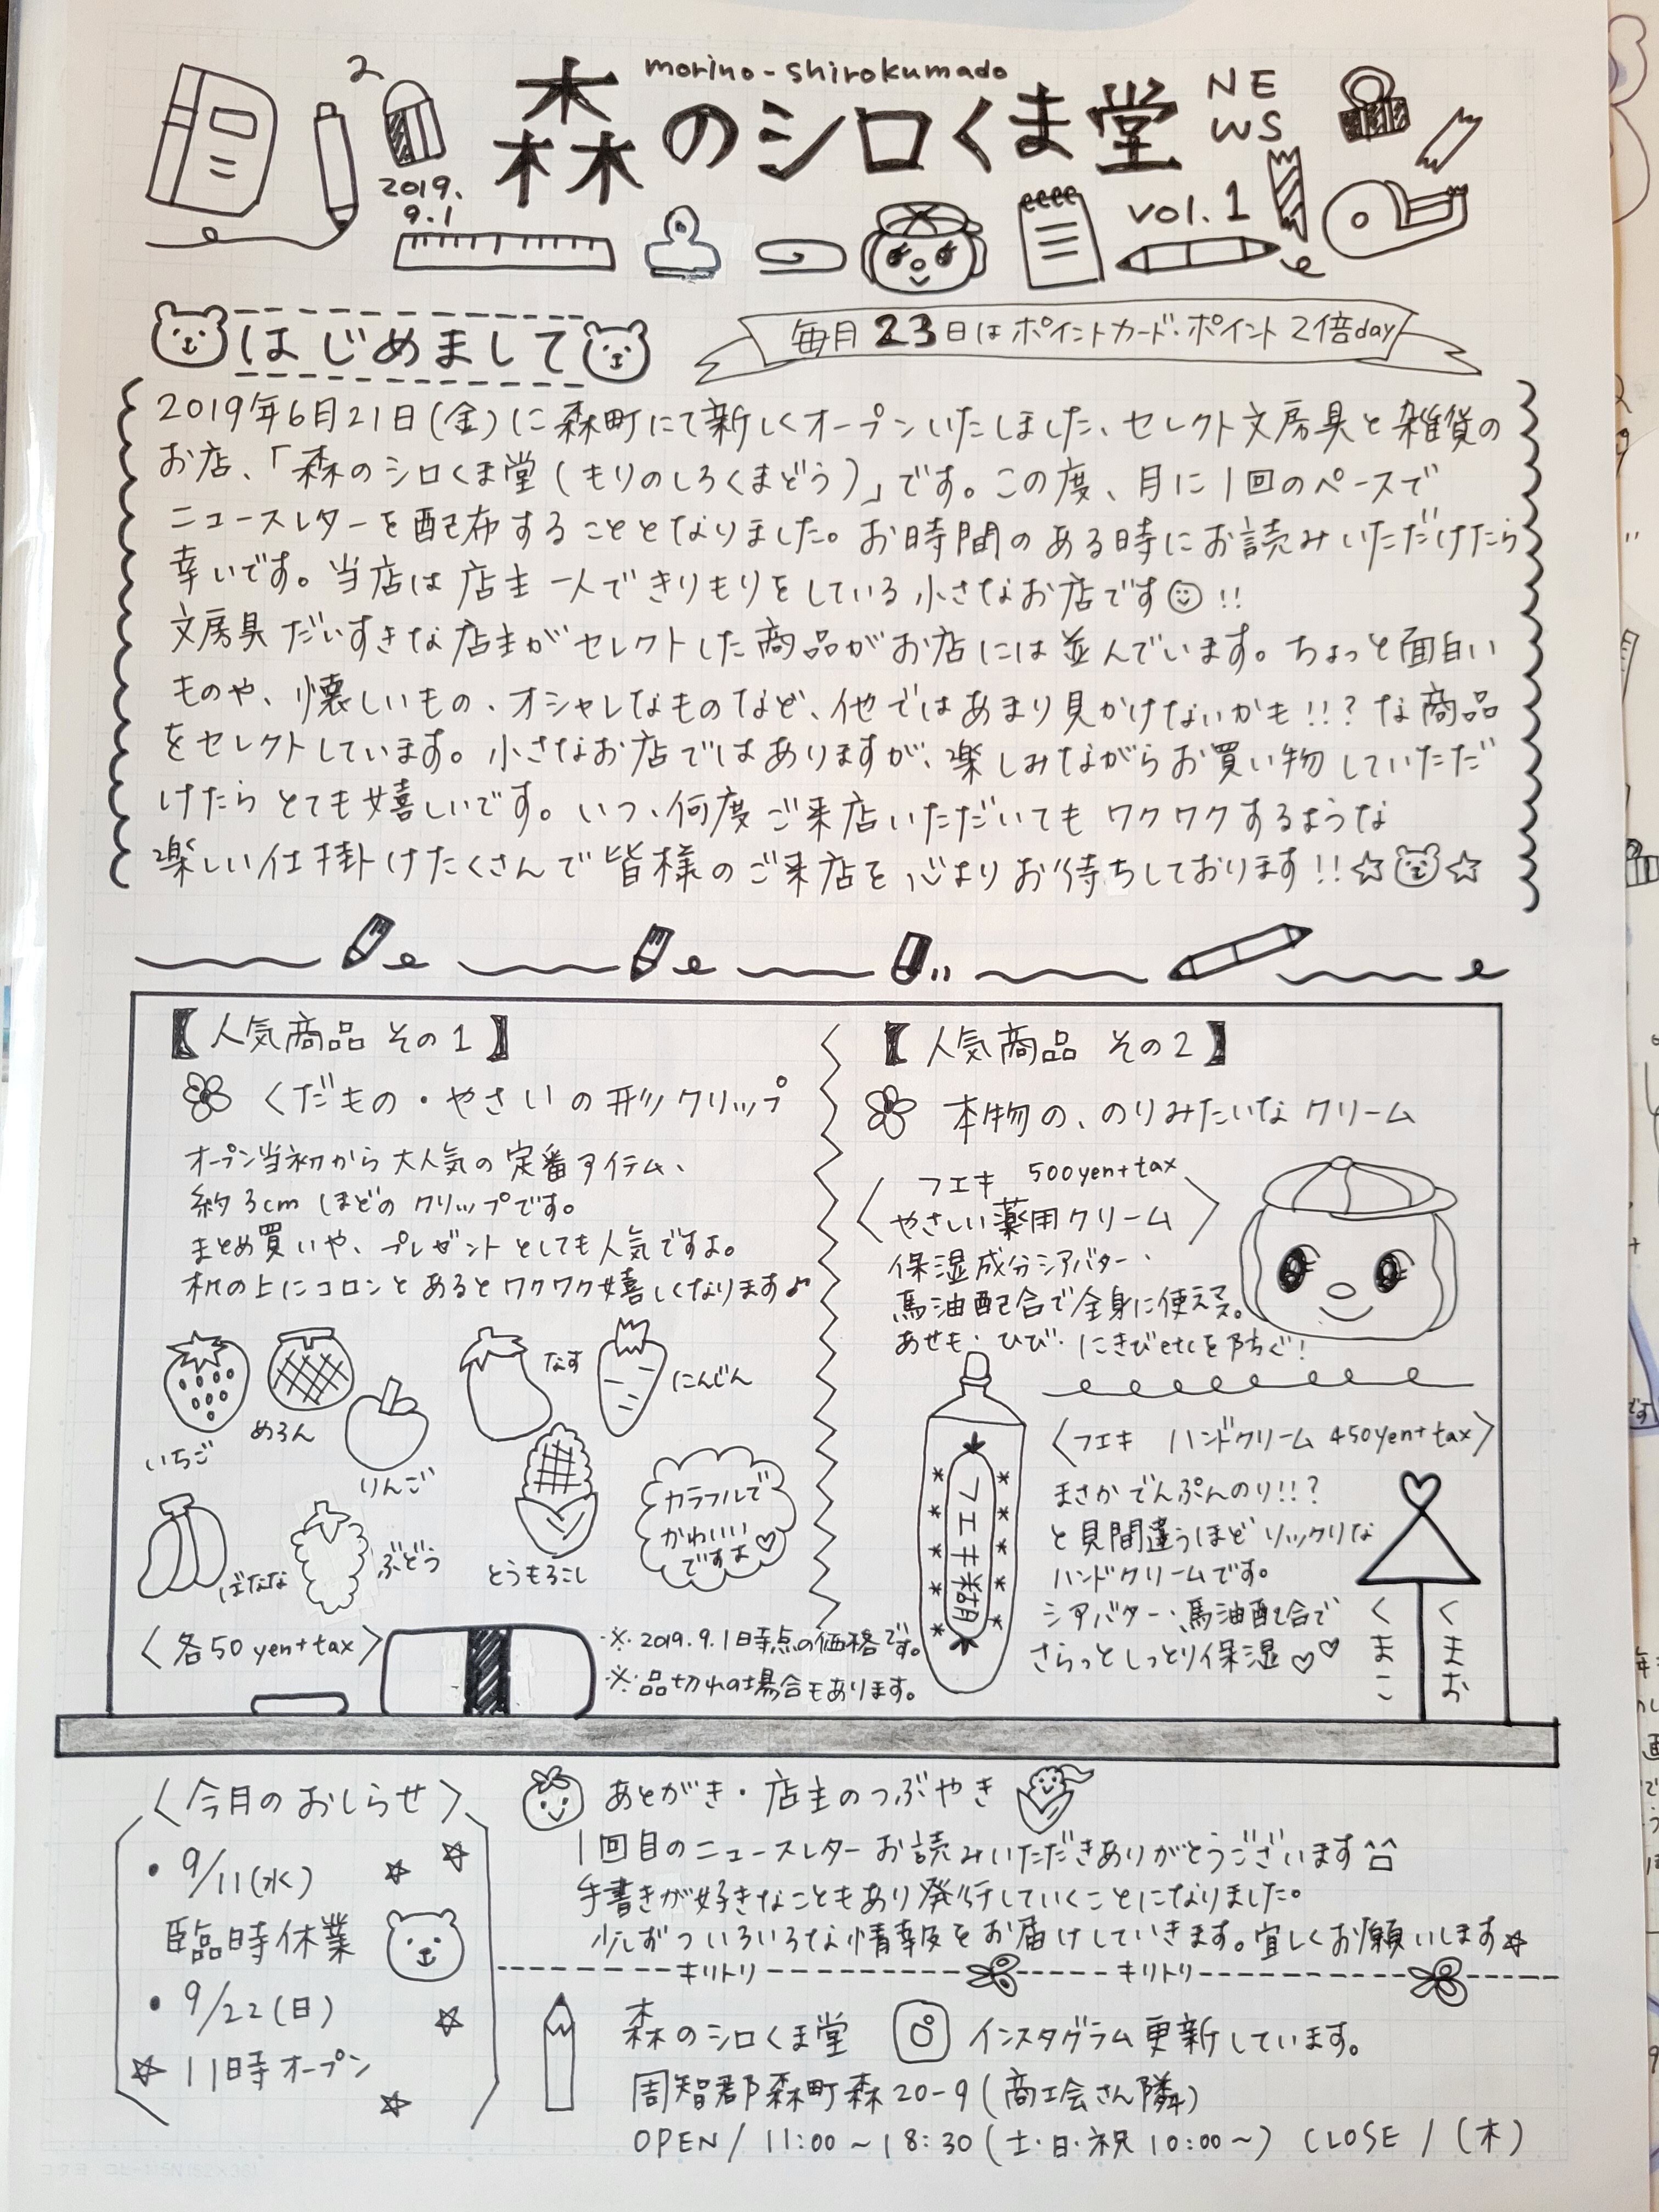 morino-shirokumado
森のシロくま堂
NEWS
2019.
9.1
vol.1
はじめまして
毎月23日はポイントカード・ポイント2倍day
2019年6月21日(金)に森町にて新しくオープンいたしました、セレクト文房具と雑貨の
お店、「森のシロくま堂(もりのしろくまどう)」です。この度、月に1回のペースで
ニュースレターを配布することとなりました。お時間のある時にお読みいただけたら
幸いです。当店は店主一人できりもりをしている小さなお店です☺!!
文房具だいすきな店主がセレクトした商品がお店には並んでいます。ちょっと面白い
ものや、懐しいもの、オシャレなものなど、他ではあまり見かけないかも!!?な商品
をセレクトしています。小さなお店ではありますが、楽しみながらお買い物していただ
けたらとても嬉しいです。いつ、何度ご来店いただいてもワクワクするような
楽しい仕掛けたくさんで皆様のご来店を心よりお待ちしております!!☆☆
【人気商品 その1】
くだもの・やさいの形クリップ
オープン当初から大人気の定番アイテム、
約3cmほどのクリップです。
まとめ買いや、プレゼントとしても人気ですよ。
机の上にコロンとあるとワクワク嬉しくなります♪
いちご
めろん
りんご
なす
にんじん
ばなな
ぶどう
とうもろこし
カラフルで
かわいい
ですよ♡
〈各50yen+tax〉
※2019.9.1日時点の価格です。
※品切れの場合もあります。
【人気商品 その2】
本物の、のりみたいなクリーム
〈フエキ 500yen+tax
やさしい薬用クリーム〉
保湿成分シアバター・
馬油配合で全身に使える。
あせも・ひび・にきびetcを防ぐ!
〈フエキ ハンドクリーム 450yen+tax〉
まさかでんぷんのり!!?
と見間違うほどソックリな
ハンドクリームです。
シアバター・馬油配合で
さらっとしっとり保湿♡♡
フエキ糊
くまこ
くまお
〈今月のおしらせ〉
・9/11(水)
臨時休業
・9/22(日)
☆11時オープン
あとがき・店主のつぶやき
1回目のニュースレターお読みいただきありがとうございます^^
手書きが好きなこともあり発行していくことになりました。
少しずついろいろな情報をお届けしていきます。宜しくお願いします☆
キリトリ キリトリ
森のシロくま堂 インスタグラム更新しています。
周智郡森町森20-9(商工会さん隣)
OPEN/11:00~18:30(土・日・祝10:00~) CLOSE/(木)